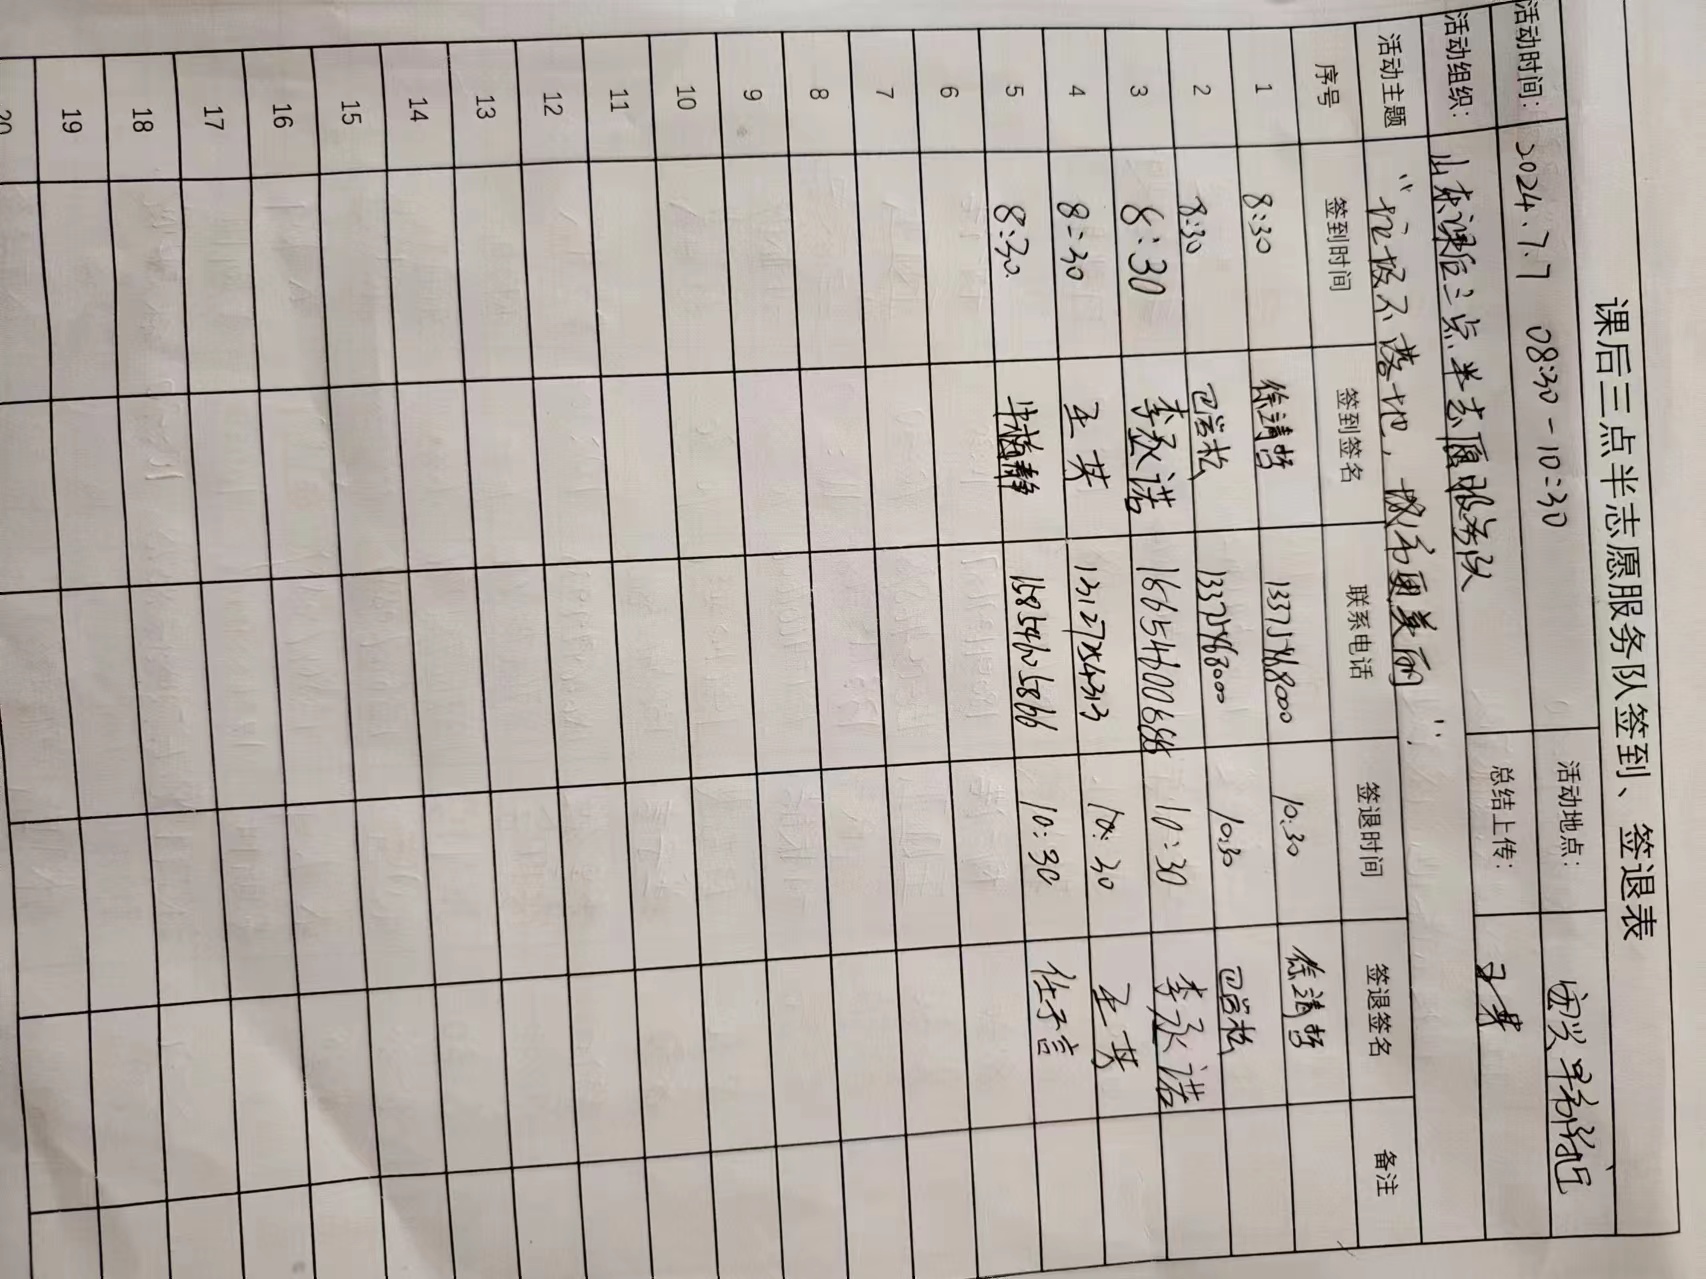 课后三点半志愿服务队签到、签退表
活动时间: 2024.7.7 08:30-10:30 活动地点:
活动组织: 山东课后三点半志愿服务队 总结上传: 王英
活动主题 “垃圾不落地，城市更美丽”
序号 签到时间 签到签名 联系电话 签退时间 签退签名 备注
1 8:30 徐靖哲 10:30 徐靖哲
2 8:30 10:30
3 8:30 李承诺 10:30 李承诺
4 8:30 王英 10:30 王英
5 8:30 10:30 任子言
6
7
8
9
10
11
12
13
14
15
16
17
18
19
20